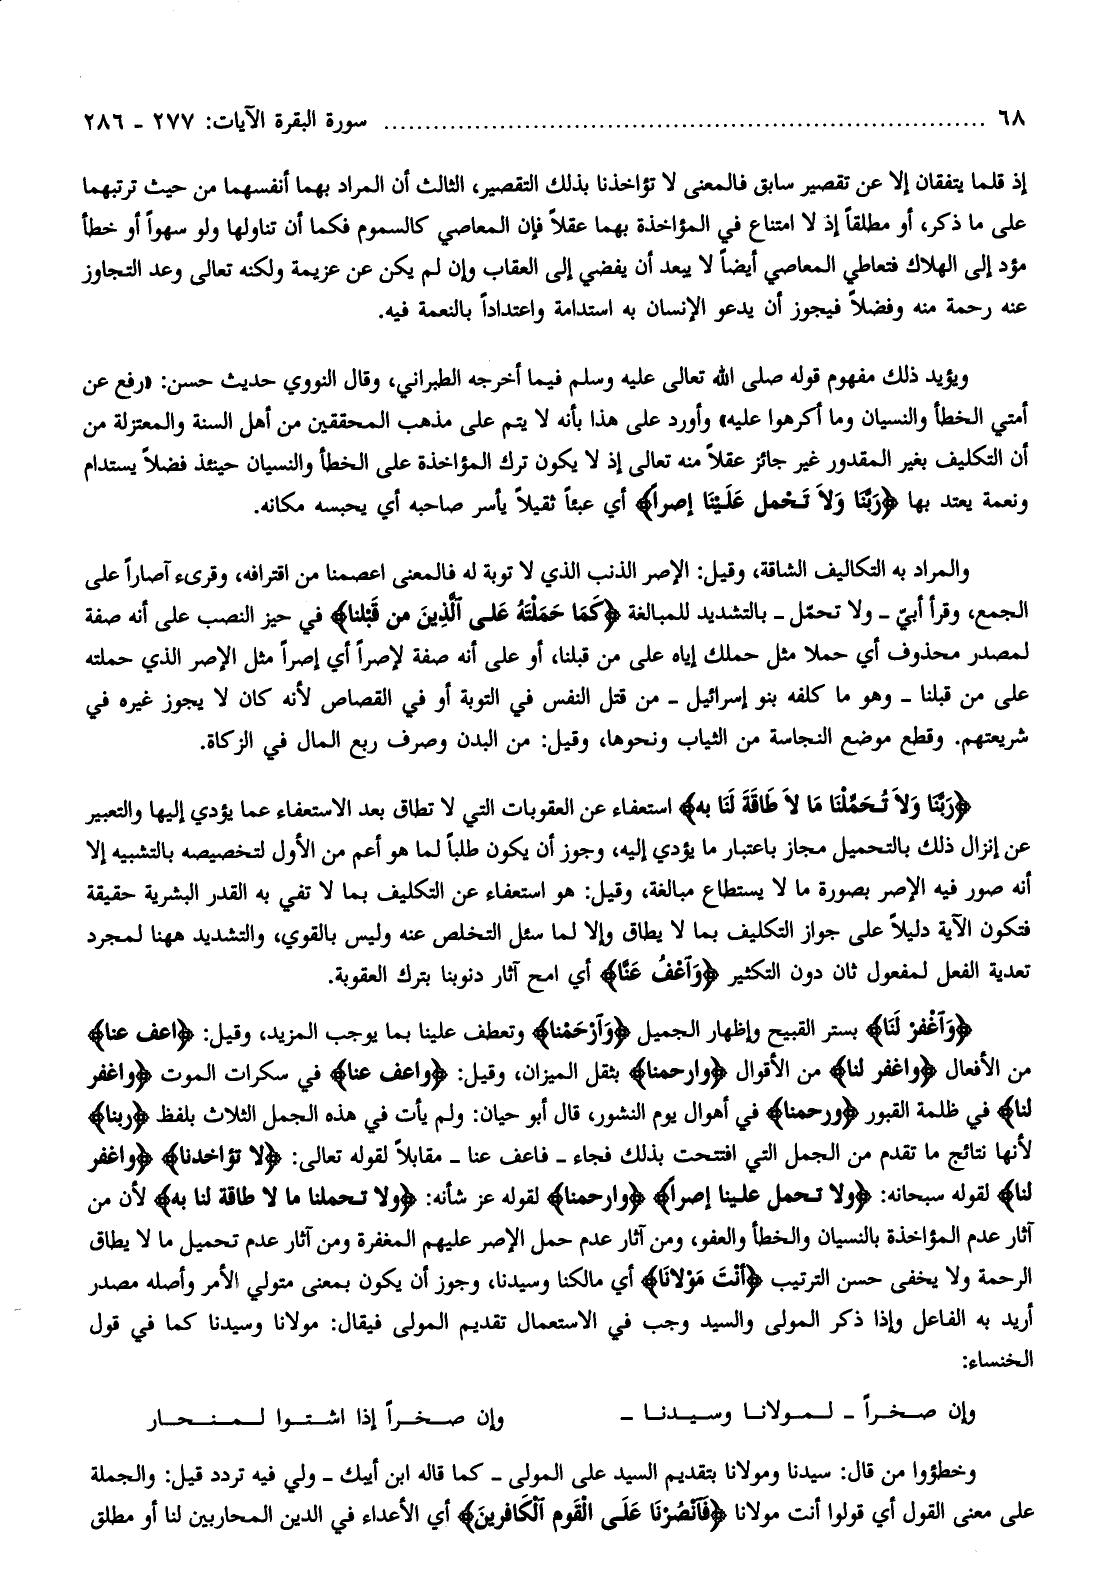 ٦٨ ........................................................................ سورة البقرة الآيات: ٢٧٧ ـ ٢٨٦
إذ قلما يتفقان إلا عن تقصير سابق فالمعنى لا تؤاخذنا بذلك التقصير، الثالث أن المراد بهما أنفسهما من حيث ترتبهما
على ما ذكر، أو مطلقاً إذ لا امتناع في المؤاخذة بهما عقلاً فإن المعاصي كالسموم فكما أن تناولها ولو سهواً أو خطأ
مؤد إلى الهلاك فتعاطي المعاصي أيضاً لا يبعد أن يفضي إلى العقاب وإن لم يكن عن عزيمة ولكنه تعالى وعد التجاوز
عنه رحمة منه وفضلاً فيجوز أن يدعو الإنسان به استدامة واعتداداً بالنعمة فيه.
ويؤيد ذلك مفهوم قوله صلى الله تعالى عليه وسلم فيما أخرجه الطبراني، وقال النووي حديث حسن: «رفع عن
أمتي الخطأ والنسيان وما أكرهوا عليه» وأورد على هذا بأنه لا يتم على مذهب المحققين من أهل السنة والمعتزلة من
أن التكليف بغير المقدور غير جائز عقلاً منه تعالى إذ لا يكون ترك المؤاخذة على الخطأ والنسيان حينئذ فضلاً يستدام
ونعمة يعتد بها ﴿رَبَّنَا وَلاَ تَحْمل عَلَيْنَا إصراً﴾ أي عبئاً ثقيلاً يأسر صاحبه أي يحبسه مكانه.
والمراد به التكاليف الشاقة، وقيل: الإصر الذنب الذي لا توبة له فالمعنى اعصمنا من اقترافه، وقرىء آصاراً على
الجمع، وقرأ أبيّ ـ ولا تحمّل ـ بالتشديد للمبالغة ﴿كَمَا حَمَلْتَهُ عَلى ٱلَّذِينَ من قَبْلنا﴾ في حيز النصب على أنه صفة
لمصدر محذوف أي حملا مثل حملك إياه على من قبلنا، أو على أنه صفة لإصراً أي إصراً مثل الإصر الذي حملته
على من قبلنا ـ وهو ما كلفه بنو إسرائيل ـ من قتل النفس في التوبة أو في القصاص لأنه كان لا يجوز غيره في
شريعتهم. وقطع موضع النجاسة من الثياب ونحوها، وقيل: من البدن وصرف ربع المال في الزكاة.
﴿رَبَّنَا وَلاَ تُحَمِّلْنَا مَا لاَ طَاقَةَ لَنَا به﴾ استعفاء عن العقوبات التي لا تطاق بعد الاستعفاء عما يؤدي إليها والتعبير
عن إنزال ذلك بالتحميل مجاز باعتبار ما يؤدي إليه، وجوز أن يكون طلباً لما هو أعم من الأول لتخصيصه بالتشبيه إلا
أنه صور فيه الإصر بصورة ما لا يستطاع مبالغة، وقيل: هو استعفاء عن التكليف بما لا تفي به القدر البشرية حقيقة
فتكون الآية دليلاً على جواز التكليف بما لا يطاق وإلا لما سئل التخلص عنه وليس بالقوي، والتشديد ههنا لمجرد
تعدية الفعل لمفعول ثان دون التكثير ﴿وَٱعْفُ عَنَّا﴾ أي امح آثار دنوبنا بترك العقوبة.
﴿وَٱغْفرْ لَنَا﴾ بستر القبيح وإظهار الجميل ﴿وَٱرْحَمْنا﴾ وتعطف علينا بما يوجب المزيد، وقيل: ﴿اعف عنا﴾
من الأفعال ﴿واغفر لنا﴾ من الأقوال ﴿وارحمنا﴾ بثقل الميزان، وقيل: ﴿واعف عنا﴾ في سكرات الموت ﴿واغفر
لنا﴾ في ظلمة القبور ﴿ورحمنا﴾ في أهوال يوم النشور، قال أبو حيان: ولم يأت في هذه الجمل الثلاث بلفظ ﴿ربنا﴾
لأنها نتائج ما تقدم من الجمل التي افتتحت بذلك فجاء ـ فاعف عنا ـ مقابلاً لقوله تعالى: ﴿لا تؤاخدنا﴾ ﴿واغفر
لنا﴾ لقوله سبحانه: ﴿ولا تحمل علينا إصراً﴾ ﴿وارحمنا﴾ لقوله عز شأنه: ﴿ولا تحملنا ما لا طاقة لنا به﴾ لأن من
آثار عدم المؤاخذة بالنسيان والخطأ والعفو، ومن آثار عدم حمل الإصر عليهم المغفرة ومن آثار عدم تحميل ما لا يطاق
الرحمة ولا يخفى حسن الترتيب ﴿أنْتَ مَوْلانَا﴾ أي مالكنا وسيدنا، وجوز أن يكون بمعنى متولي الأمر وأصله مصدر
أريد به الفاعل وإذا ذكر المولى والسيد وجب في الاستعمال تقديم المولى فيقال: مولانا وسيدنا كما في قول
الخنساء:
وإن صخراً ـ لمولانا وسيدنا ـ وإن صخراً إذا اشتوا لمنحار
وخطؤوا من قال: سيدنا ومولانا بتقديم السيد على المولى ـ كما قاله ابن أيبك ـ ولي فيه تردد قيل: والجملة
على معنى القول أي قولوا أنت مولانا ﴿فَٱنْصُرْنَا عَلَى الْقَوم ٱلْكَافرينَ﴾ أي الأعداء في الدين المحاربين لنا أو مطلق